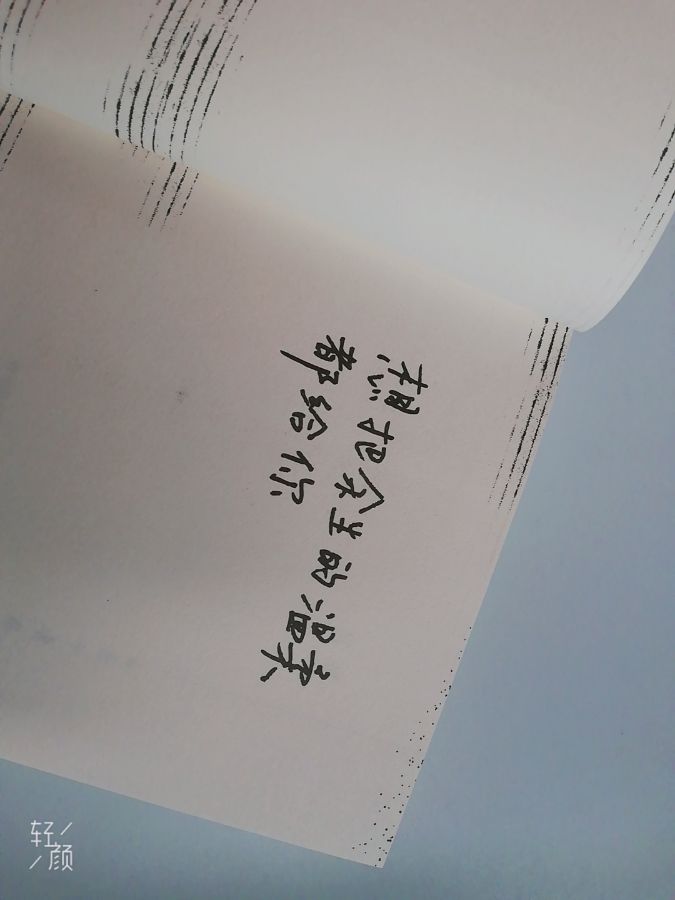 想把余生的温柔
都给你
轻颜